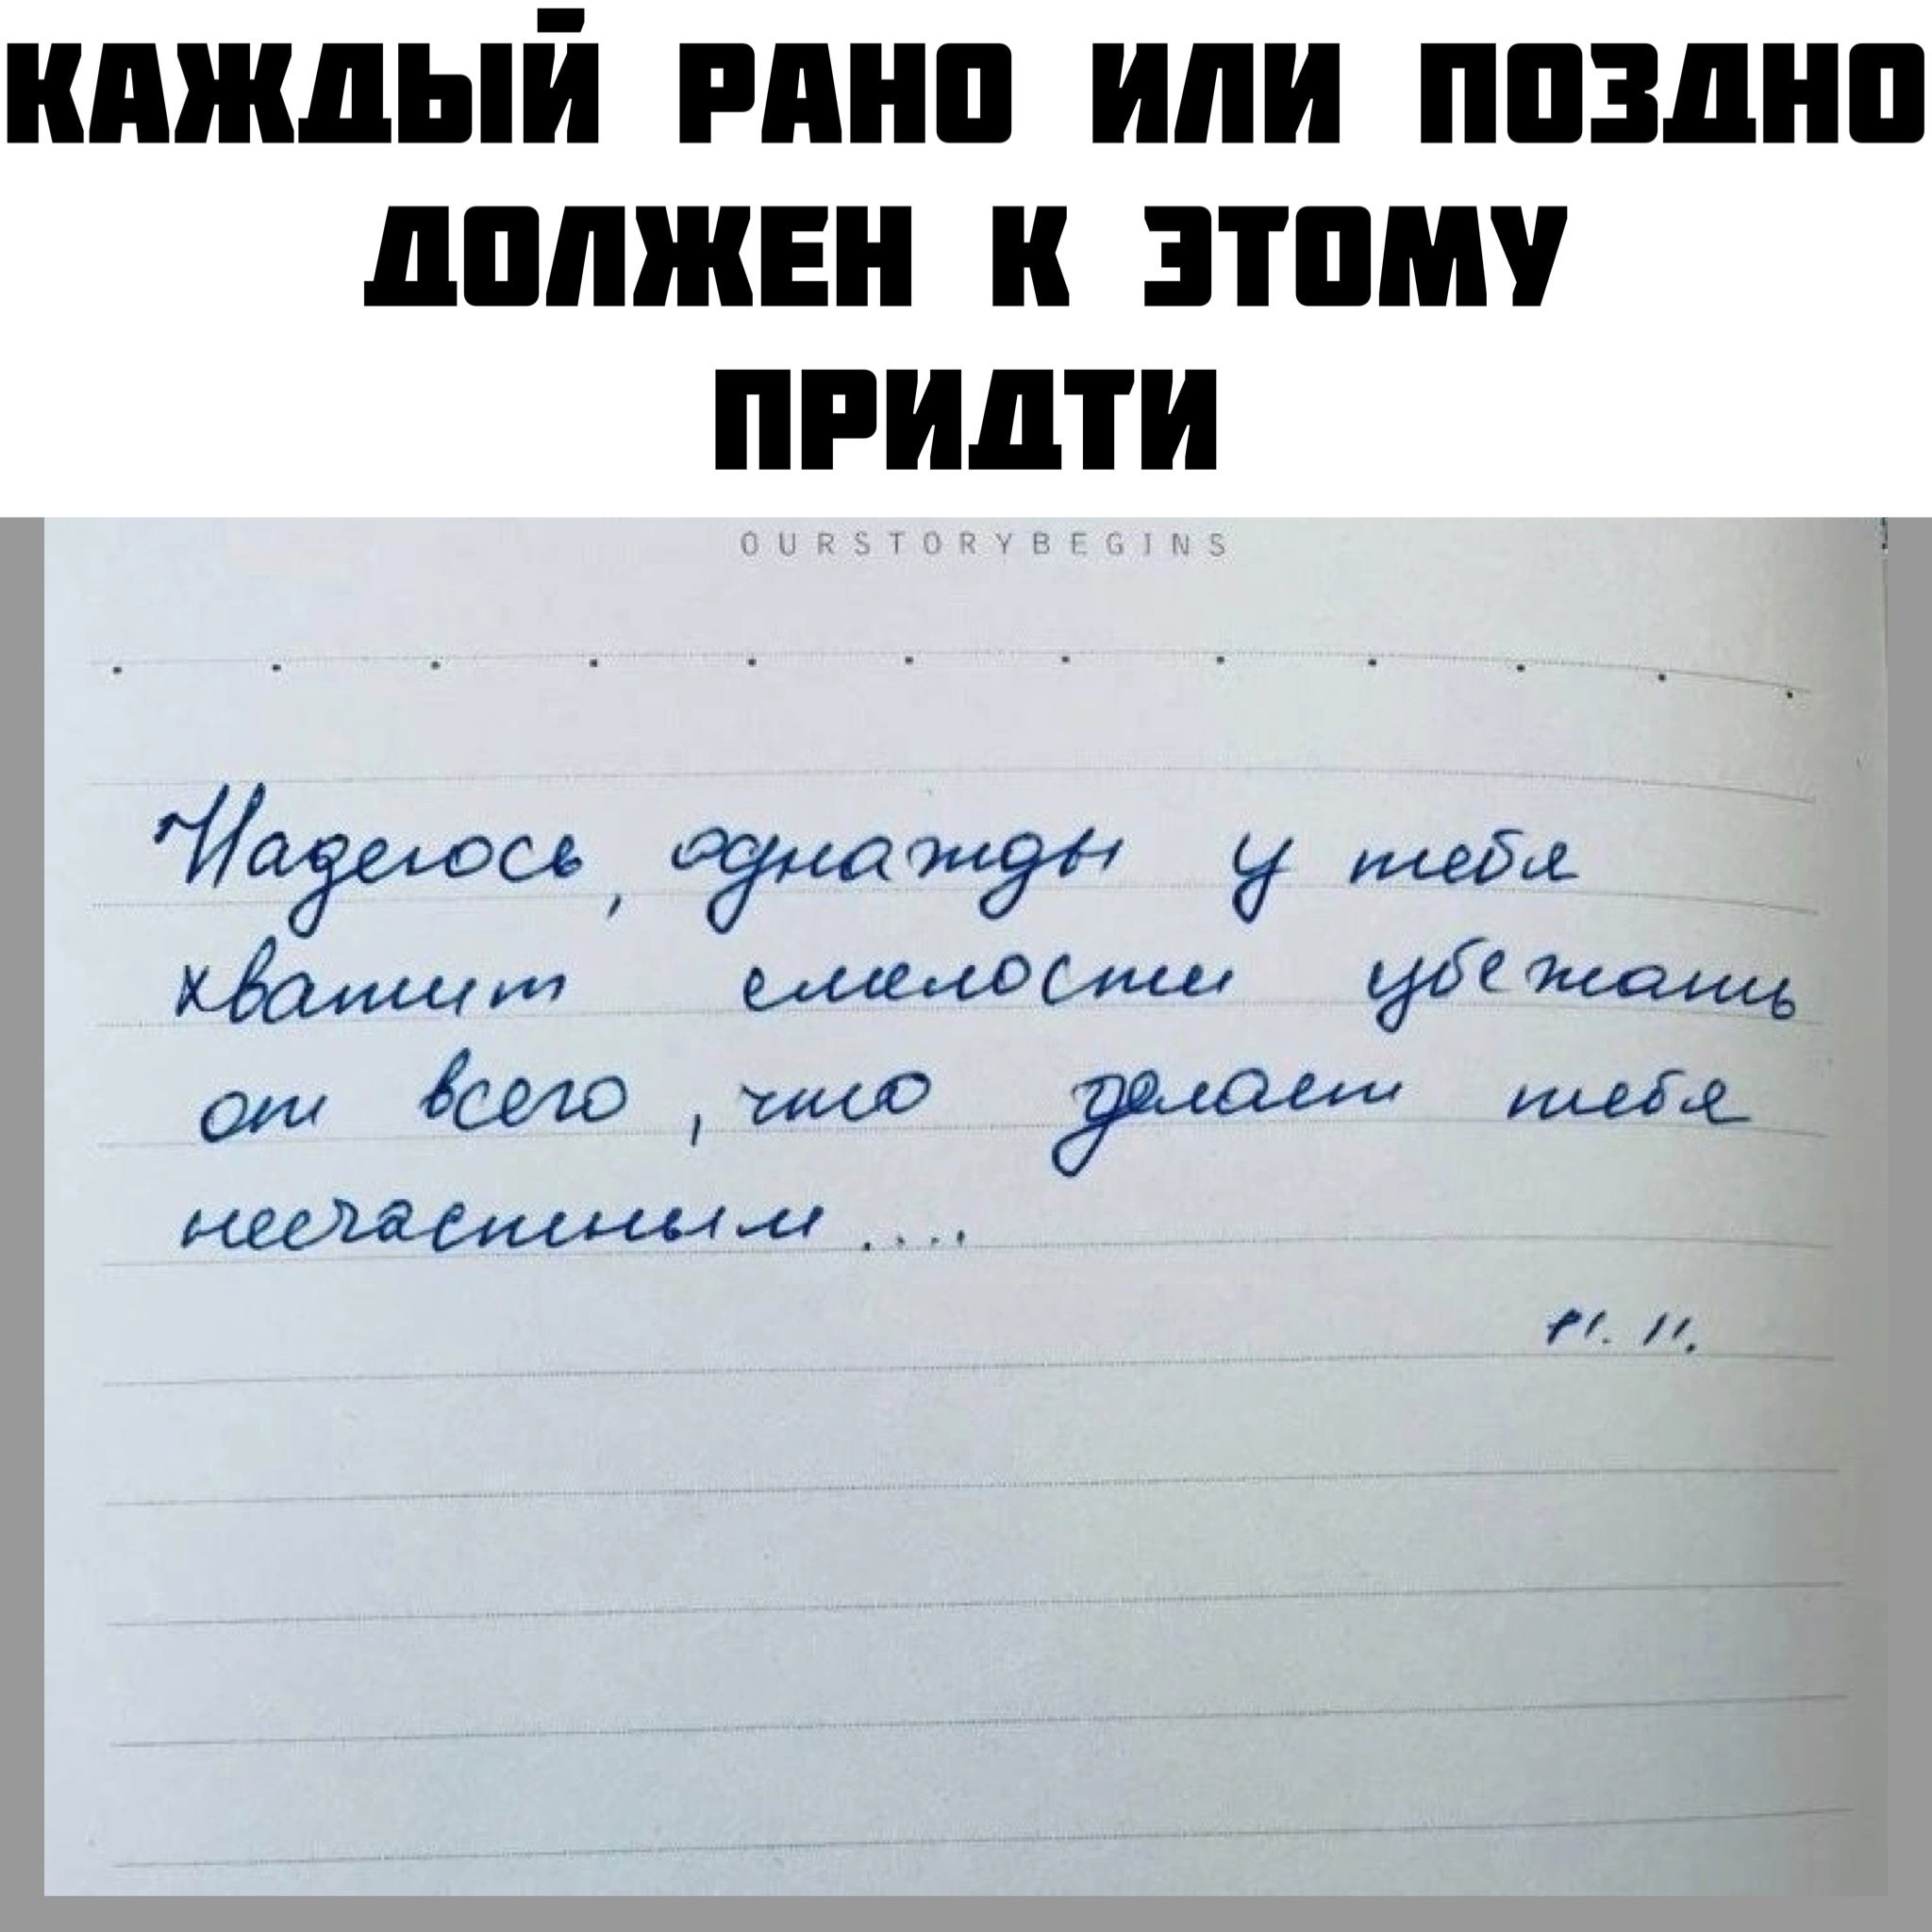 КАЖДЫЙ РАНО ИЛИ ПОЗДНО
ДОЛЖЕН К ЭТОМУ
ПРИДТИ
OURSTORYBEGINS
Надеюсь, однажды у тебя
хватит смелости убежать
от всего, что делает тебя
несчастным....
11.11.